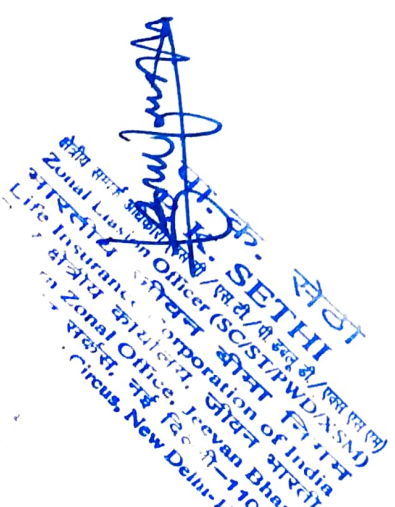 क. सेठी
K. SETHI
क्षेत्रीय /एस टी/पी डब्लू डी/एक्स एस एम)
Zonal Liasion Officer (SC/ST/PWD/XSM)
भारतीय जीवन बीमा निगम
Life Insuranc Corporation of India
क्षेत्रीय कार्यालय, जीवन भारती
Zonal Office, Jeevan Bha
सर्कस, नई दि ी–110
Circus, New Delhi-1